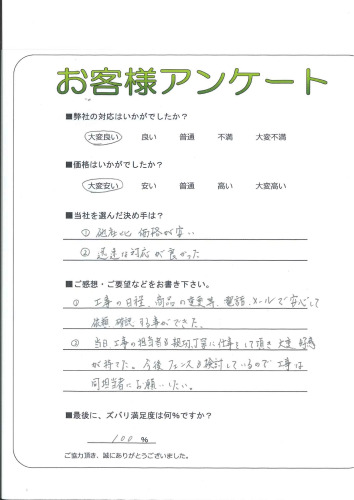 お客様アンケート
■弊社の対応はいかがでしたか?
大変良い 良い 普通 不満 大変不満
■価格はいかがでしたか?
大変安い 安い 普通 高い 大変高い
■当社を選んだ決め手は?
① 他社比 価格が安い
② 迅速な対応が良かった
■ご感想・ご要望などをお書き下さい。
① 工事の日程、商品の変更等、電話、メールで安心して
依頼 確認 する事ができた。
② 当日工事の担当者も親切、丁寧に仕事をして頂き 大変 好感
が持てた。今後フェンスも検討しているので工事は
同担当者にお願いしたい。
■最後に、ズバリ満足度は何%ですか?
100 %
ご協力頂き、誠にありがとうございました。